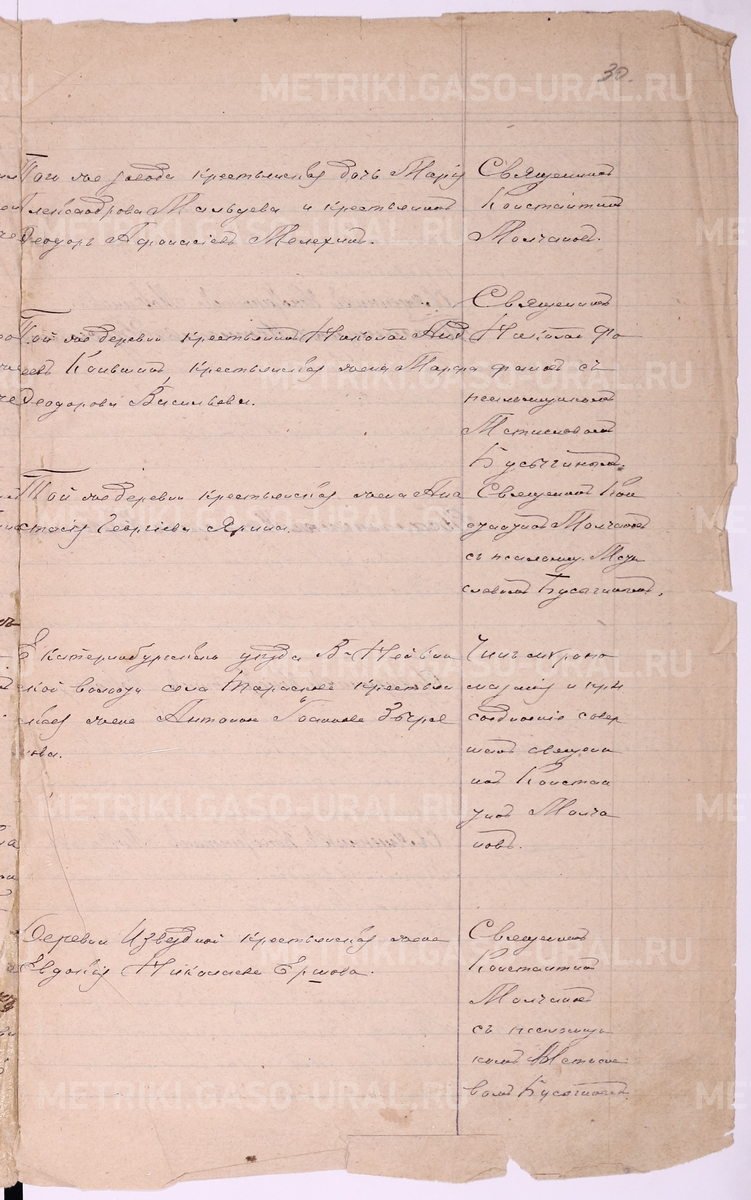 30.
Того же завода крестьянская дочь Марія
Александрова Мальцева и крестьянинъ
Ѳеодоръ Аѳанасіевъ Мелехинъ.
Священникъ
Константинъ
Молчановъ.
Той же деревни крестьянинъ Николай
крестьянская жена Марѳа
Ѳеодорова Васильева.
Священникъ
Николай
съ
псаломщикомъ
Мстиславомъ
Бусыгинымъ.
Той же деревни крестьянская жена Ана
стасія Георгіева Ярина.
Священникъ Кон
стантинъ Молчановъ
съ псаломщ. Мсти
славомъ Бусыгинымъ.
Екатеринбургскаго уѣзда В-Нейвин
ской волости села Тарасковъ крестьян
ская жена Антонина Іоаннова Звѣре
ва.
Чинъ мѵропо
мазанія и при
соединенія совер
шалъ священ
никъ Констан
тинъ Молча
новъ.
Деревни Извѣздной крестьянская жена
Евдокія Николаева Ершова.
Священникъ
Константинъ
Молчановъ
съ псаломщи
комъ Мстисла
вомъ Бусыгинымъ.
METRIKI.GASO-URAL.RU